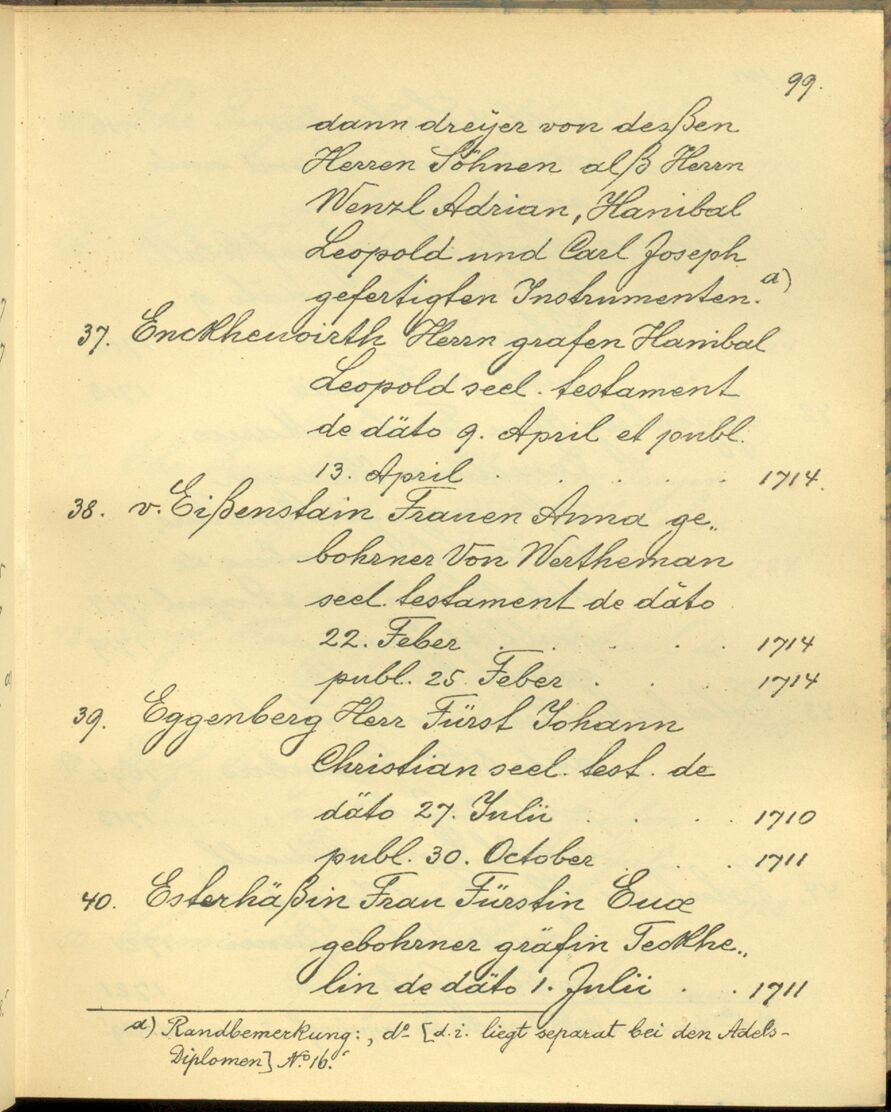 99.
dann dreÿer von deßßen
Herren Söhnen alß Herrn
Wenzl Adrian, Hanibal
Leopold und Carl Joseph
gefertigten Instrumenten. a)
37. Enckhewoirth Herrn grafen Hanibal
Leopold seel. testament
de däto 9. April et publ.
13. April . . . . . 1714.
38. v. Eißenstain Frauen Anna ge„
bohrner Von Wertheman
seel. testament de däto
22. Feber . . . . . 1714
publ. 25 Feber . . . 1714
39. Eggenberg Herr Fürst Johann
Christian seel. test. de
däto 27. Julii . . . 1710
publ. 30. October . . . 1711
40. Esterhäßin Frau Fürstin Euæ
gebohrner gräfin Teckhe„
lin de däto 1. Julii . . 1711
a) Randbemerkung: „ dº [d. i. liegt separat bei den Adels-
Diplomen] Nº 16.“